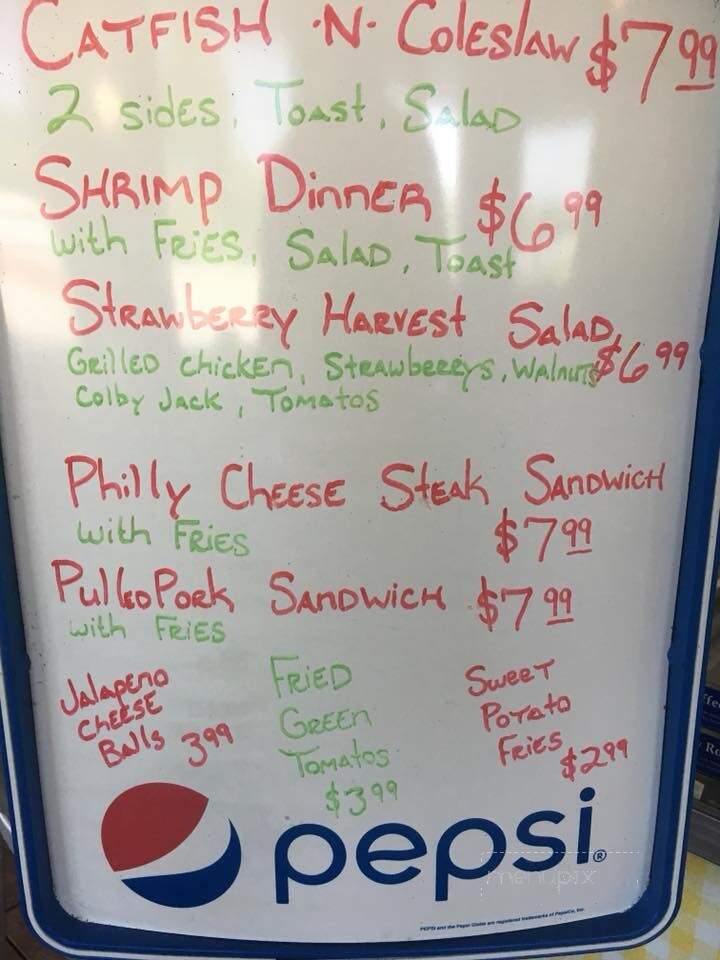 CATFISH ·N· Coleslaw $7 99
2 sides, Toast, Salad
SHRIMP DinnER $6 99
with FRiES, SALAD, Toast
StRAWbERRy HARVESt SalAD,
GRillED chicKEn, StRAWbeReys, WAlnuts $6 99
Colby Jack, TOMatOS
Philly CHEESE SteAk SAnDWicH
with FRiES $7 99
PullED PoRk SAnDWicH $7 99
with FRiES
Jalapeno
CHEESE
Balls 3 99
FRiED
GREEn
TOMAtos
$3 99
SweeT
POTato
FRiES
$2 99
pepsi®
menupix
PEPSI and the Pepsi Globe are registered trademarks of PepsiCo, Inc.